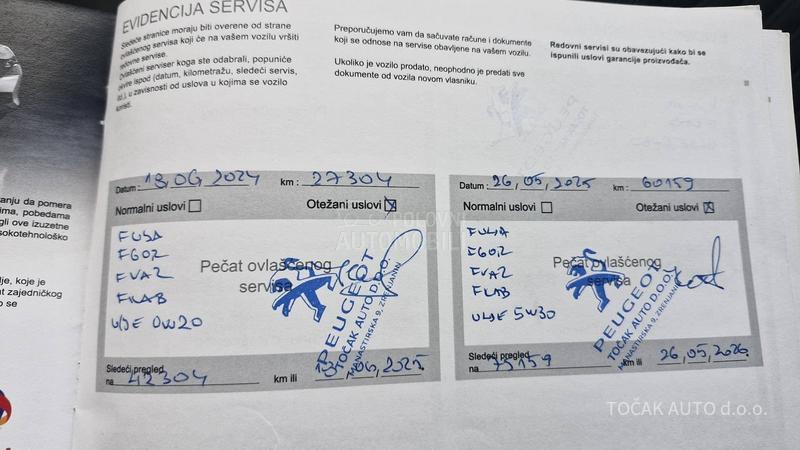 EVIDENCIJA SERVISA
Sledeće stranice moraju biti overene od strane
ovlašćenog servisa koji će na vašem vozilu vršiti
redovne servise.
Ovlašćeni serviser koga ste odabrali, popuniće
okvire ispod (datum, kilometražu, sledeći servis,
itd.), u zavisnosti od uslova u kojima se vozilo
koristi.
Preporučujemo vam da sačuvate račune i dokumente
koji se odnose na servise obavljene na vašem vozilu.
Ukoliko je vozilo prodato, neophodno je predati sve
dokumente od vozila novom vlasniku.
Redovni servisi su obavezujući kako bi se
ispunili uslovi garancije proizvođača.
anju da pomera
ima, pobedama
gli ove izuzetne
sokotehnološko
lje, koje je
at zajedničkog
o se
Datum: 13,06 2024 km: 27304
Normalni uslovi Otežani uslovi
FUSA
FGOR
FVAZ
FKAB
ULJE 0W20
Pečat ovlašćenog
servisa
PEUGEOT
TOČAK AUTO D.O.O.
MANASTIRSKA 9, ZRENJANIN
Sledeći pregled
na 42304 km ili 13,06,2025.
Datum: 26,05,2025 km: 60159
Normalni uslovi Otežani uslovi
FULJA
FGOR
FVAZ
FKAB
ULJE 5W30
Pečat ovlašćenog
servisa
PEUGEOT
TOČAK AUTO D.O.O.
MANASTIRSKA 9, ZRENJANIN
Sledeći pregled
na 75159 km ili 26,05,2026.
POLOVNI
AUTOMOBILI
TOČAK AUTO d.o.o.